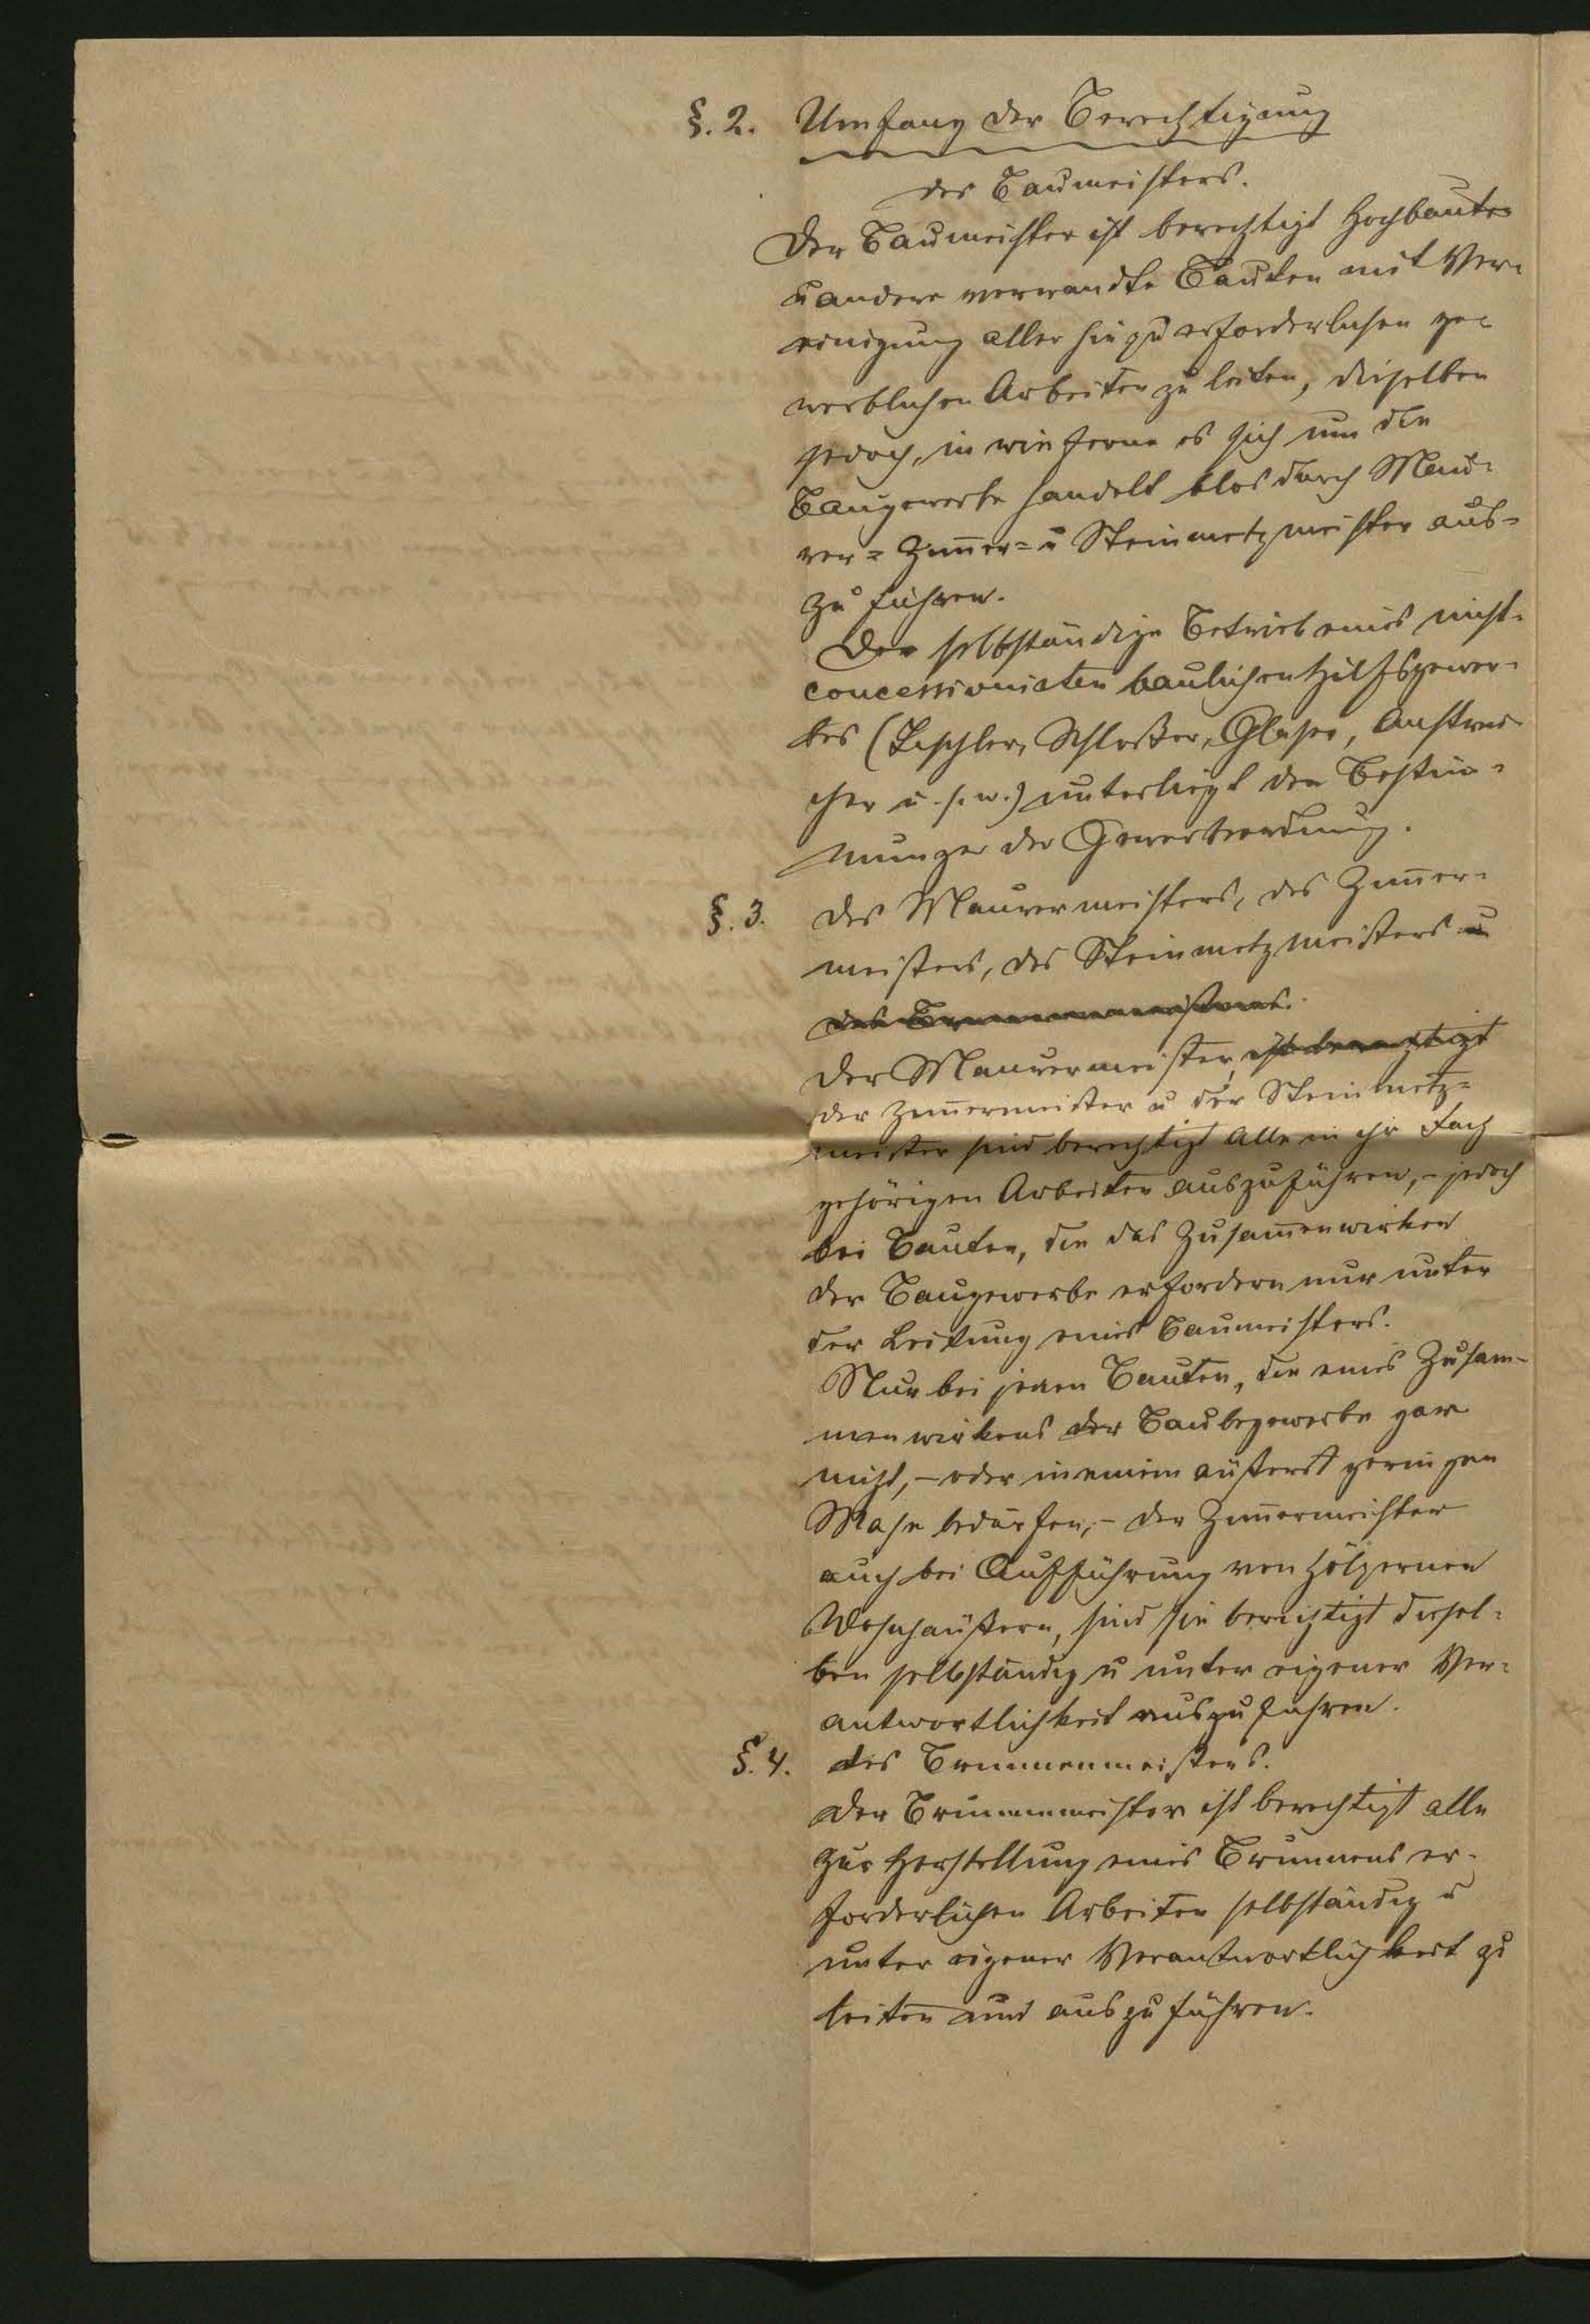 §. 2. Umfang der Berechtigung
des Baumeisters.
Der Baumeister ist berechtigt Hochbauten
u andere verwandte Bauten mit Ver-
einigung aller hiezu erforderlichen ge-
werblichen Arbeiten zu leiten, dieselben
jedoch, in wie ferne es sich um die
Baugewerbe handelt blos durch Mau-
rer- Zim̄er- u Steinmetzmeister aus-
zuführen.
Der selbständige Betrieb eines nicht-
concessionirten baulichen Hilfsgewer-
bes (Tischler, Schloßer, Glaser, Anstrei-
cher u. s. w.) unterliegt den Bestim̄-
mungen der Gewerbeordnung.
§. 3. des Maurermeisters, des Zim̄er-
meisters, des Steinmetzmeisters u
des Brunnenmeisters.
Der Maurermeister, ist berechtigt
der Zim̄ermeister u der Steinmetz-
meister sind berechtigt alle in ihr Fach
gehörigen Arbeiten auszuführen, – jedoch
bei Bauten, die das Zusam̄enwirken
der Baugewerbe erfordern nur unter
der Leitung eines Baumeisters.
Nur bei jenen Bauten, die eines Zusam-
menwirkens der Baubegewerbe gar
nicht, – oder in einem äußerst geringen
Maße bedürfen, – der Zim̄ermeister
auch bei Aufführung von hölzernen
Wohnhäußern, sind sie berechtigt diesel-
ben selbständig u unter eigener Ver-
antwortlichkeit auszuführen.
§. 4. des Brunnenmeisters.
Der Brunnenmeister ist berechtigt alle
zur Herstellung eines Brunnens er-
forderlichen Arbeiten selbständig u
unter eigener Verantwortlichkeit zu
leiten und auszuführen.